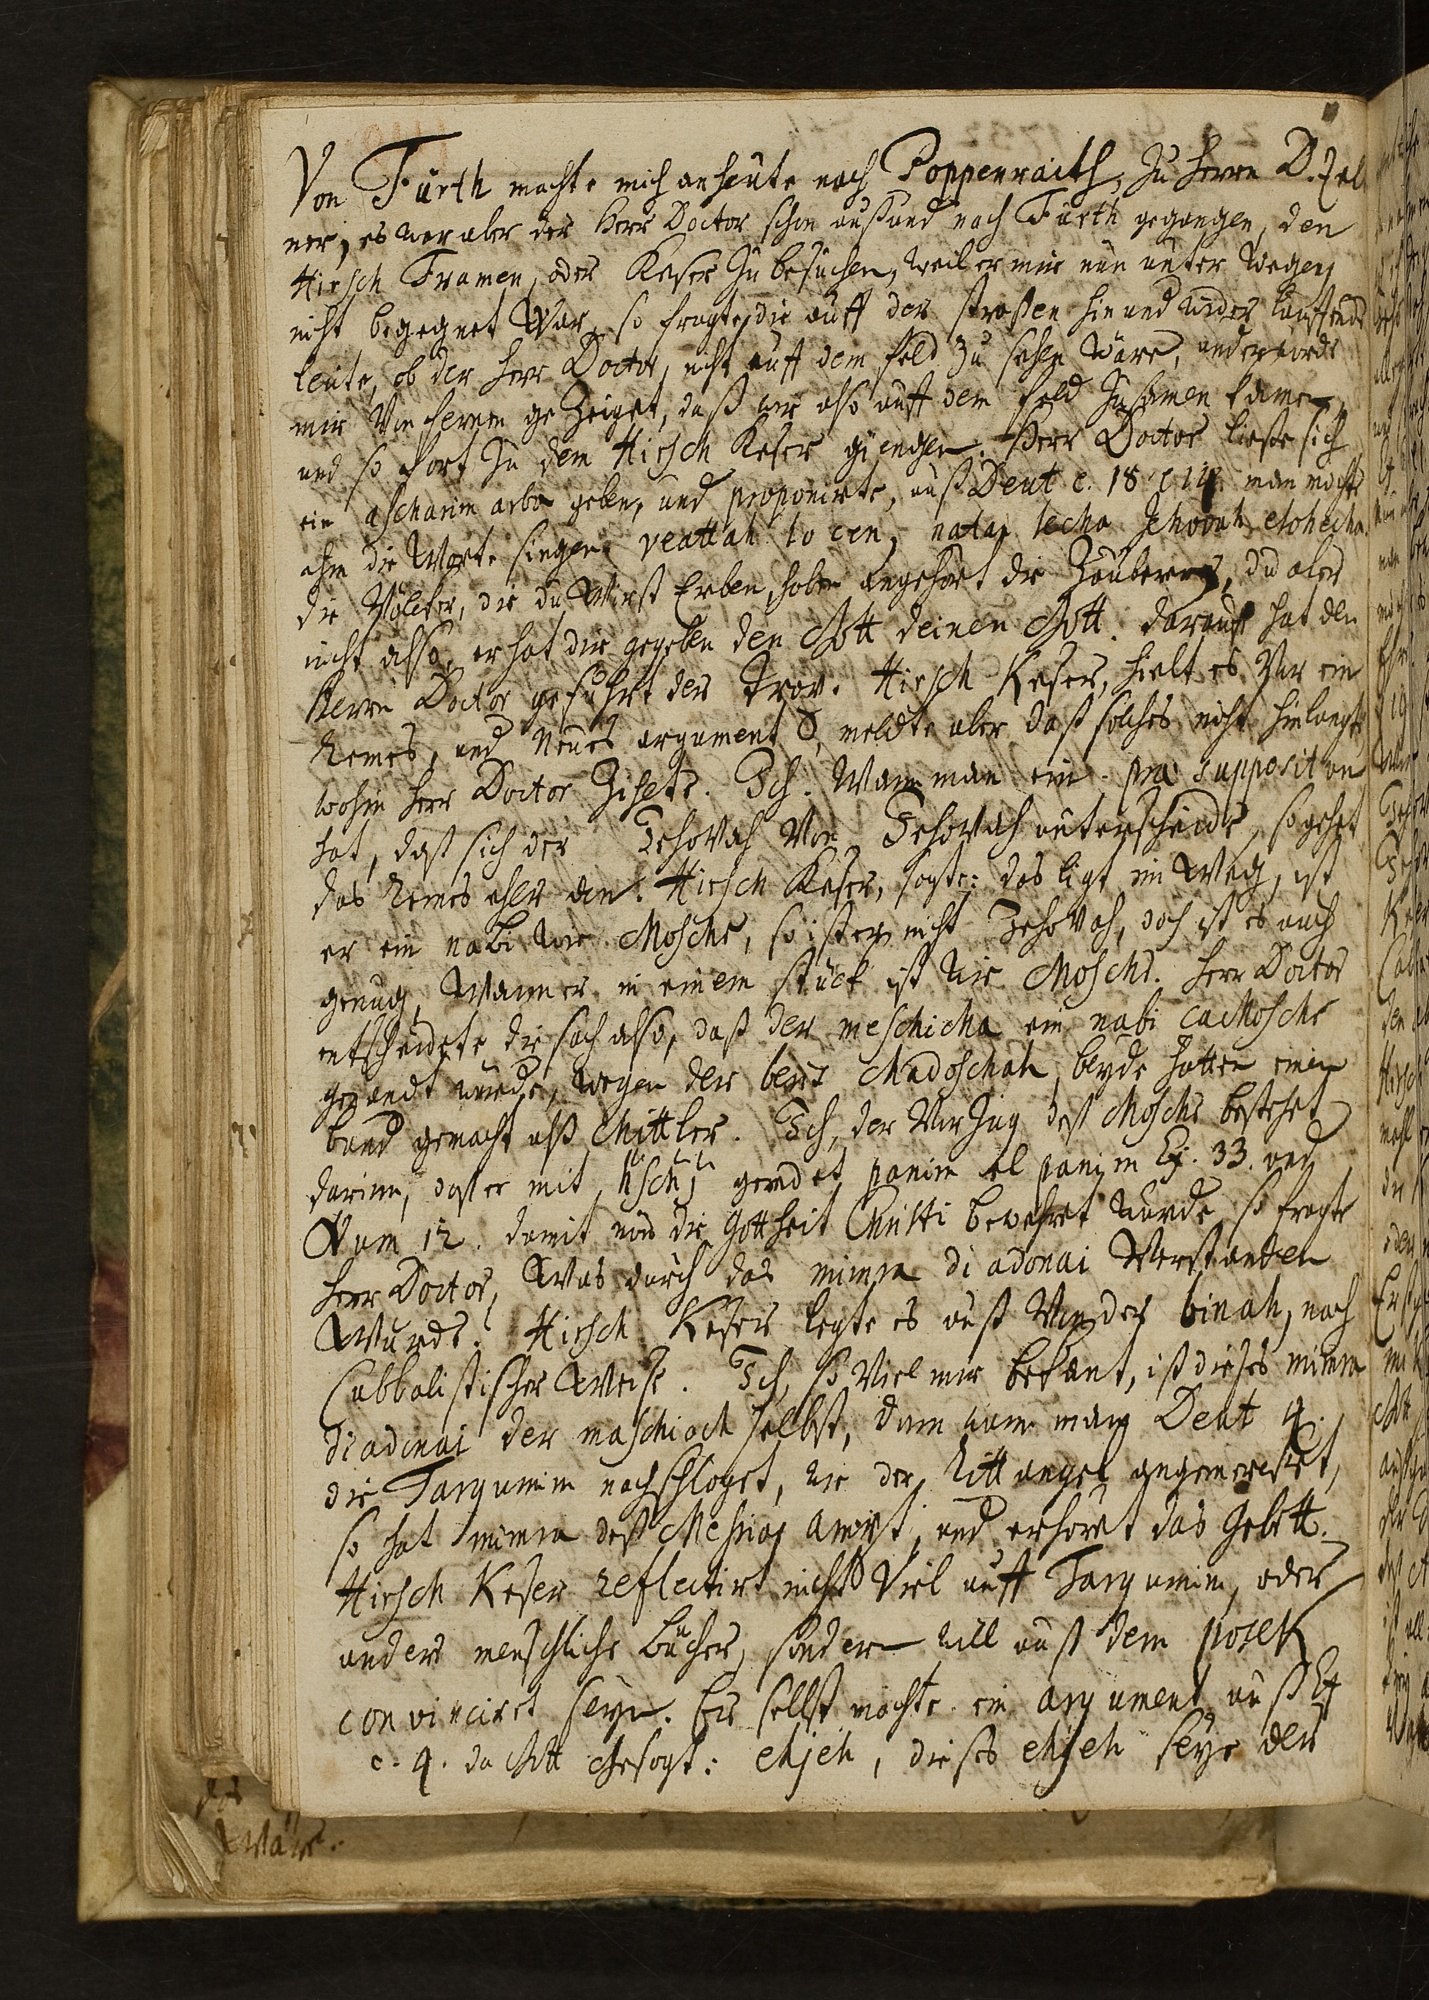 Von Fürth machte mich anheute nach Poppenraith, zu Herrn D. Zel
ner, es war aber der Herr Doctor schon auß und nach Fürth gegangen, den
Hirsch Framen, oder Keser zu besuchen, weil er mir nun unter wegen
nicht begegnet war, so fragte die auff der strassen hin und wider lauffende
leute, ob der Herr Doctor, nicht auff dem feld zu sehen wäre, und er wurde
mir von fernen gezeiget, daß wir also auff dem feld zusamen kamen,
und so fort zu dem Hirsch Keser giengen. Herr Doctor ließe sich
ein ascharim arba geben, und proponirte, auß Deut c. 18. man möchte
ihm die Worte singen veattah lo cen, natan lecha Jehovah elohecha.
die Völcker, die du wirst Erben, haben angehört die Zauberer, du aber
nicht also, er hat dir gegeben den Gott deinen Gott. darauff hat den
Herrn Doctor geführt der Trop. Hirsch Keser, hielt es vor ein
Remes, und neues argument, meldte aber daß solches nicht hinlangte
wohin Herr Doctor Zihets. Ich. Wann man ein præsupposit on
hat, daß sich der Jehovah von Jehovah unterscheide, so gehet
das Remes eher an. Hirsch Keser, sagte: das ligt im Weg, ist
er ein nabi wie Mosche, so ist er nicht Jehovah, doch ist es auch
genug, Wann er in einem stück ist wie Mosche. Herr Doctor
entscheidete die sach also, daß der meschicha ein nabi caMosche
genandt wurde, wegen der berit Chadoschah, beyde hatten einen
bund gemacht alß Mittler. Ich, der Vorzug deß Mosche bestehet
darinn, daß er mit geredet panim el panim Ex. 33. und
Num 12. damit nun die Gottheit Christi bewehret wurde, so fragte
Herr Doctor, Was durch das mimra di adonai Verstanden
Wurde? Hirsch Keser legte es auß Von der binah, nach
Cabbalistischer Weise. Ich, so viel mir bekant, ist dieses mimra
di adonai der maschiach selbst, dann wann man Deut 4.
die Targumim nachschlaget, wie der Rittangel angemercket,
so hat mimra deß Messias Ampt, und erhöret das Gebett.
Hirsch Keser reflectirt nicht Viel auff Targumim, oder
andere menschliche bücher, sondern will auß dem posek
convinciret seyn. Er selbst machte ein argument auß Ex
c. 4. da Gott Gesagt: ehjeh, dieses ehjeh seye der
das
Wäre.